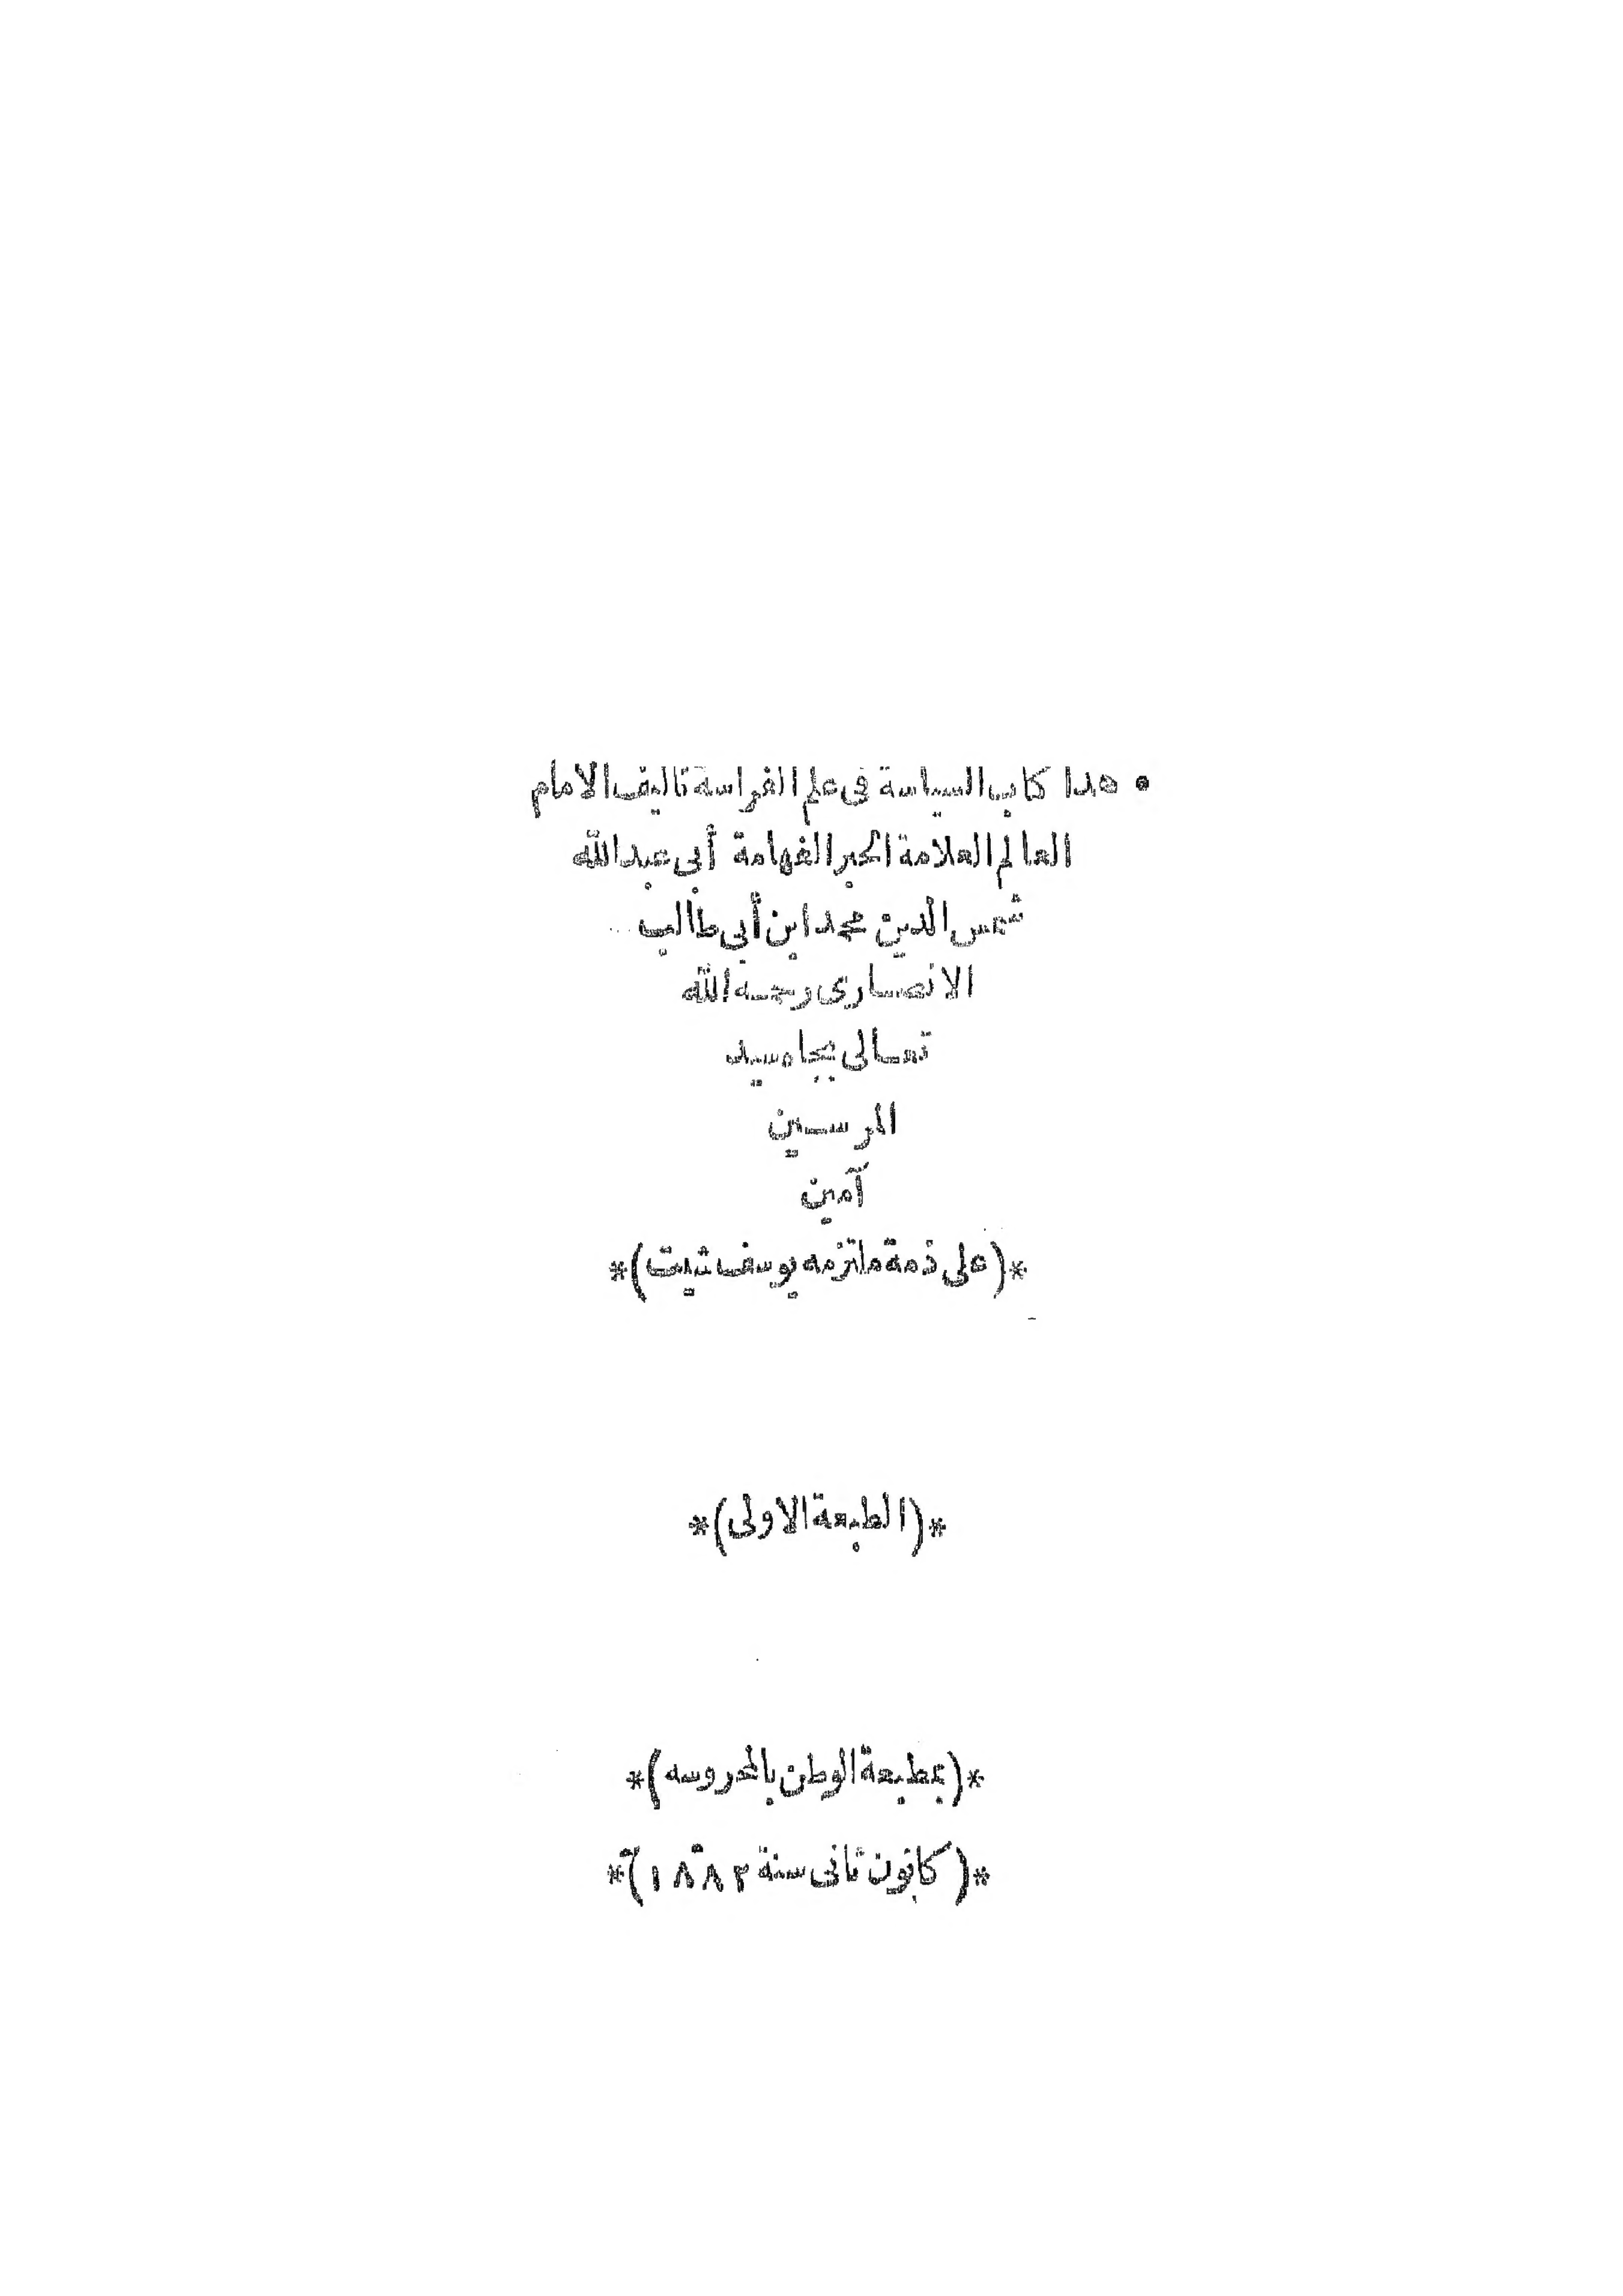 • هذا كتاب السياسة فى علم الفراسة تاليف الامام
العالم العلامة الحبر الفهامة أبى عبد الله
شمس الدين محمد ابن أبى طالب
الانصارى رحمه الله
تعالى بجاه سيد
المرسلين
آمين
*(على ذمة ملتزمه يوسف ثيت)*
*(الطبعة الاولى)*
*(بمطبعة الوطن بالمحروسه)*
*(كانون ثانى سنة ١٨٨٢)*